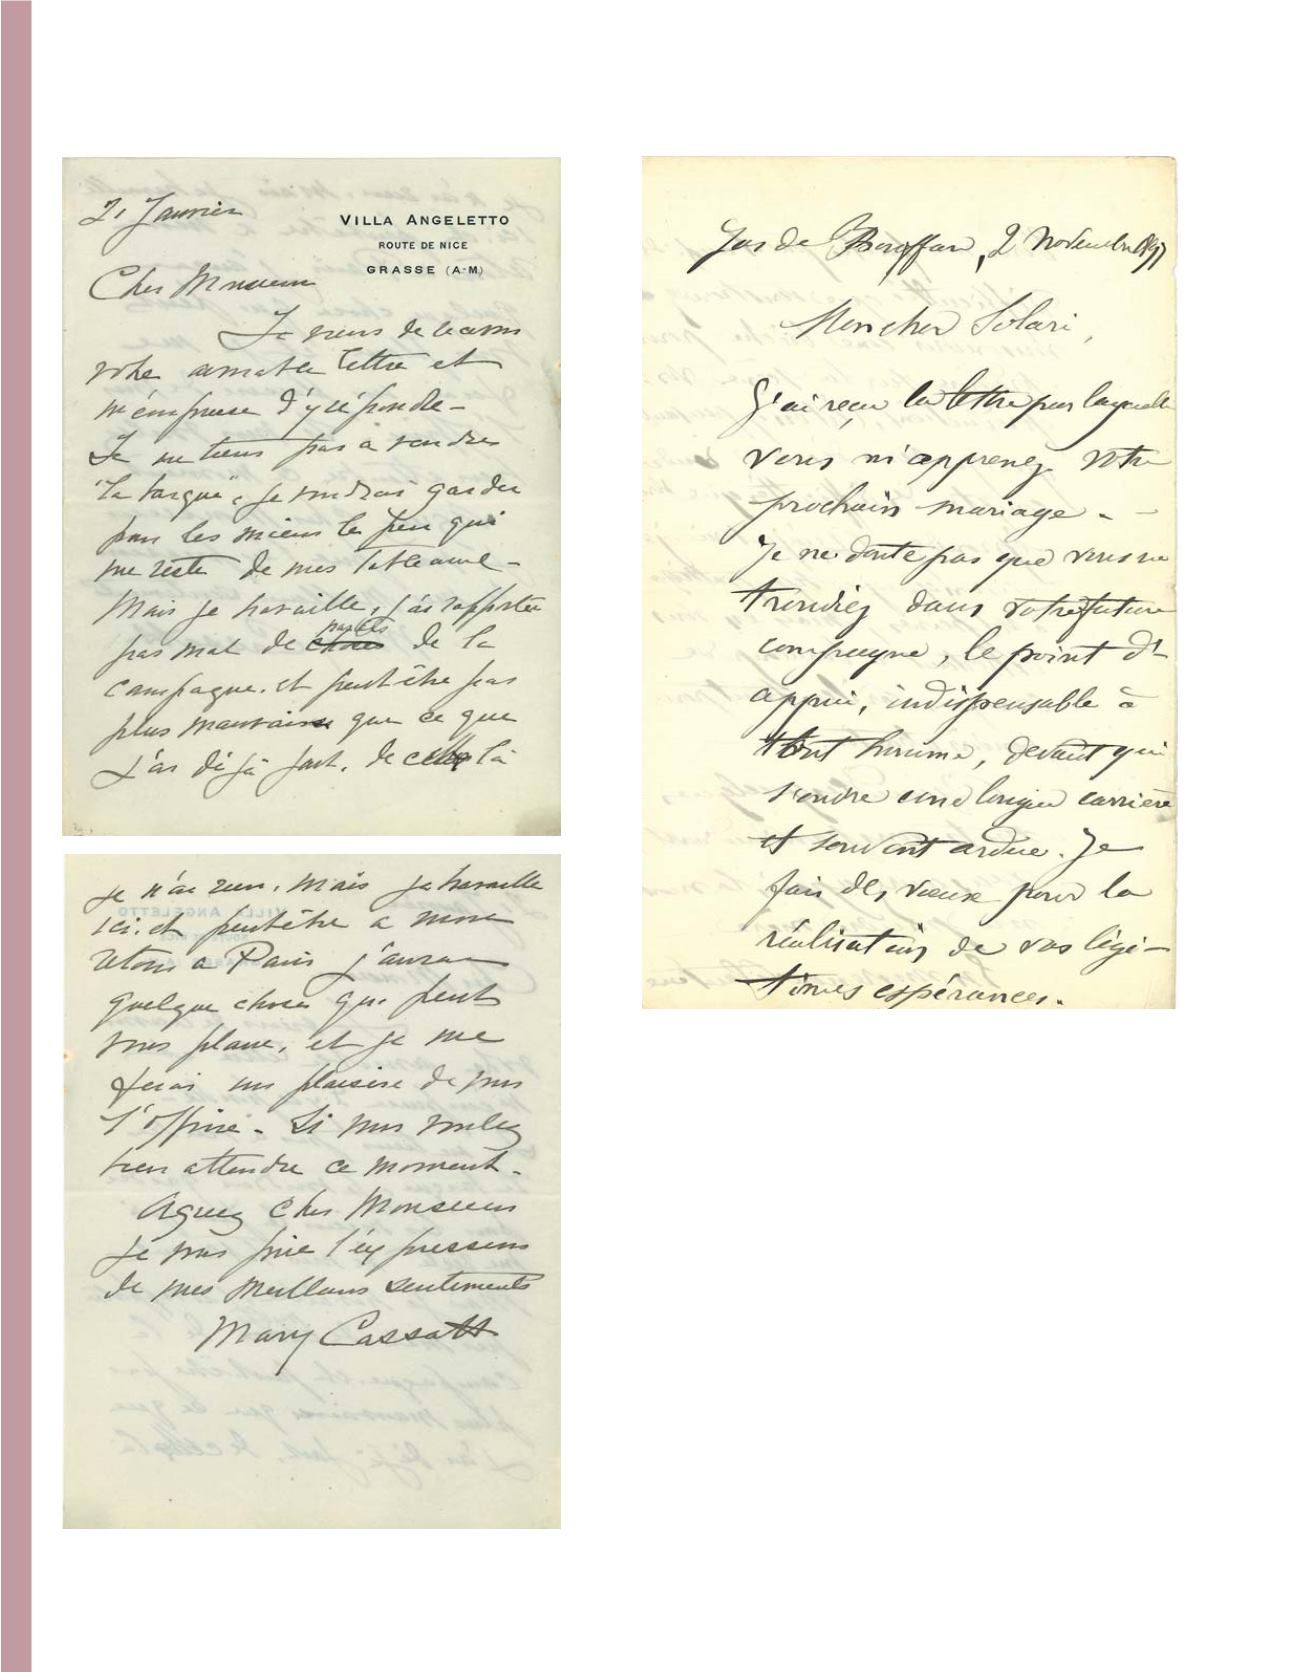 21 Janvier
VILLA ANGELETTO
ROUTE DE NICE
GRASSE (A-M)
Cher Monsieur
Je viens de recevoir
votre aimable lettre et
m'empresse d'y répondre -
Je ne tiens pas a vendre
"la barque", je voudrais garder
pour les miens le peu qui
me reste de mes tableaux -
Mais je travaille, j'ai rapporter
pastels
pas mal de choses de la
campagne. et peut être pas
plus mauvais que ce que
j'ai déjà fait, de cela là
je n'ai rien. Mais je travaille
ici. et peut être a mon
retour a Paris j'aurai
quelque chose qui peut
vous plaire, et je me
ferai un plaisir de vous
l'offrir - Si vous voulez
bien attendre ce moment -
Agreez Cher Monsieur
je vous prie l'expression
de mes meilleurs sentiments
Mary Cassatt
Jas de Bouffan, 2 novembre 1897
Mon cher Solari,
J'ai reçu la lettre par laquelle
vous m'apprenez votre
prochain mariage. -
Je ne doute pas que vous ne
trouviez dans votre future
compagne, le point d'
appui, indispensable à
tout homme, devant qui
s'ouvre une longue carrière
et souvent ardue. Je
fais des vœux pour la
réalisation de vos légi-
times espérances.